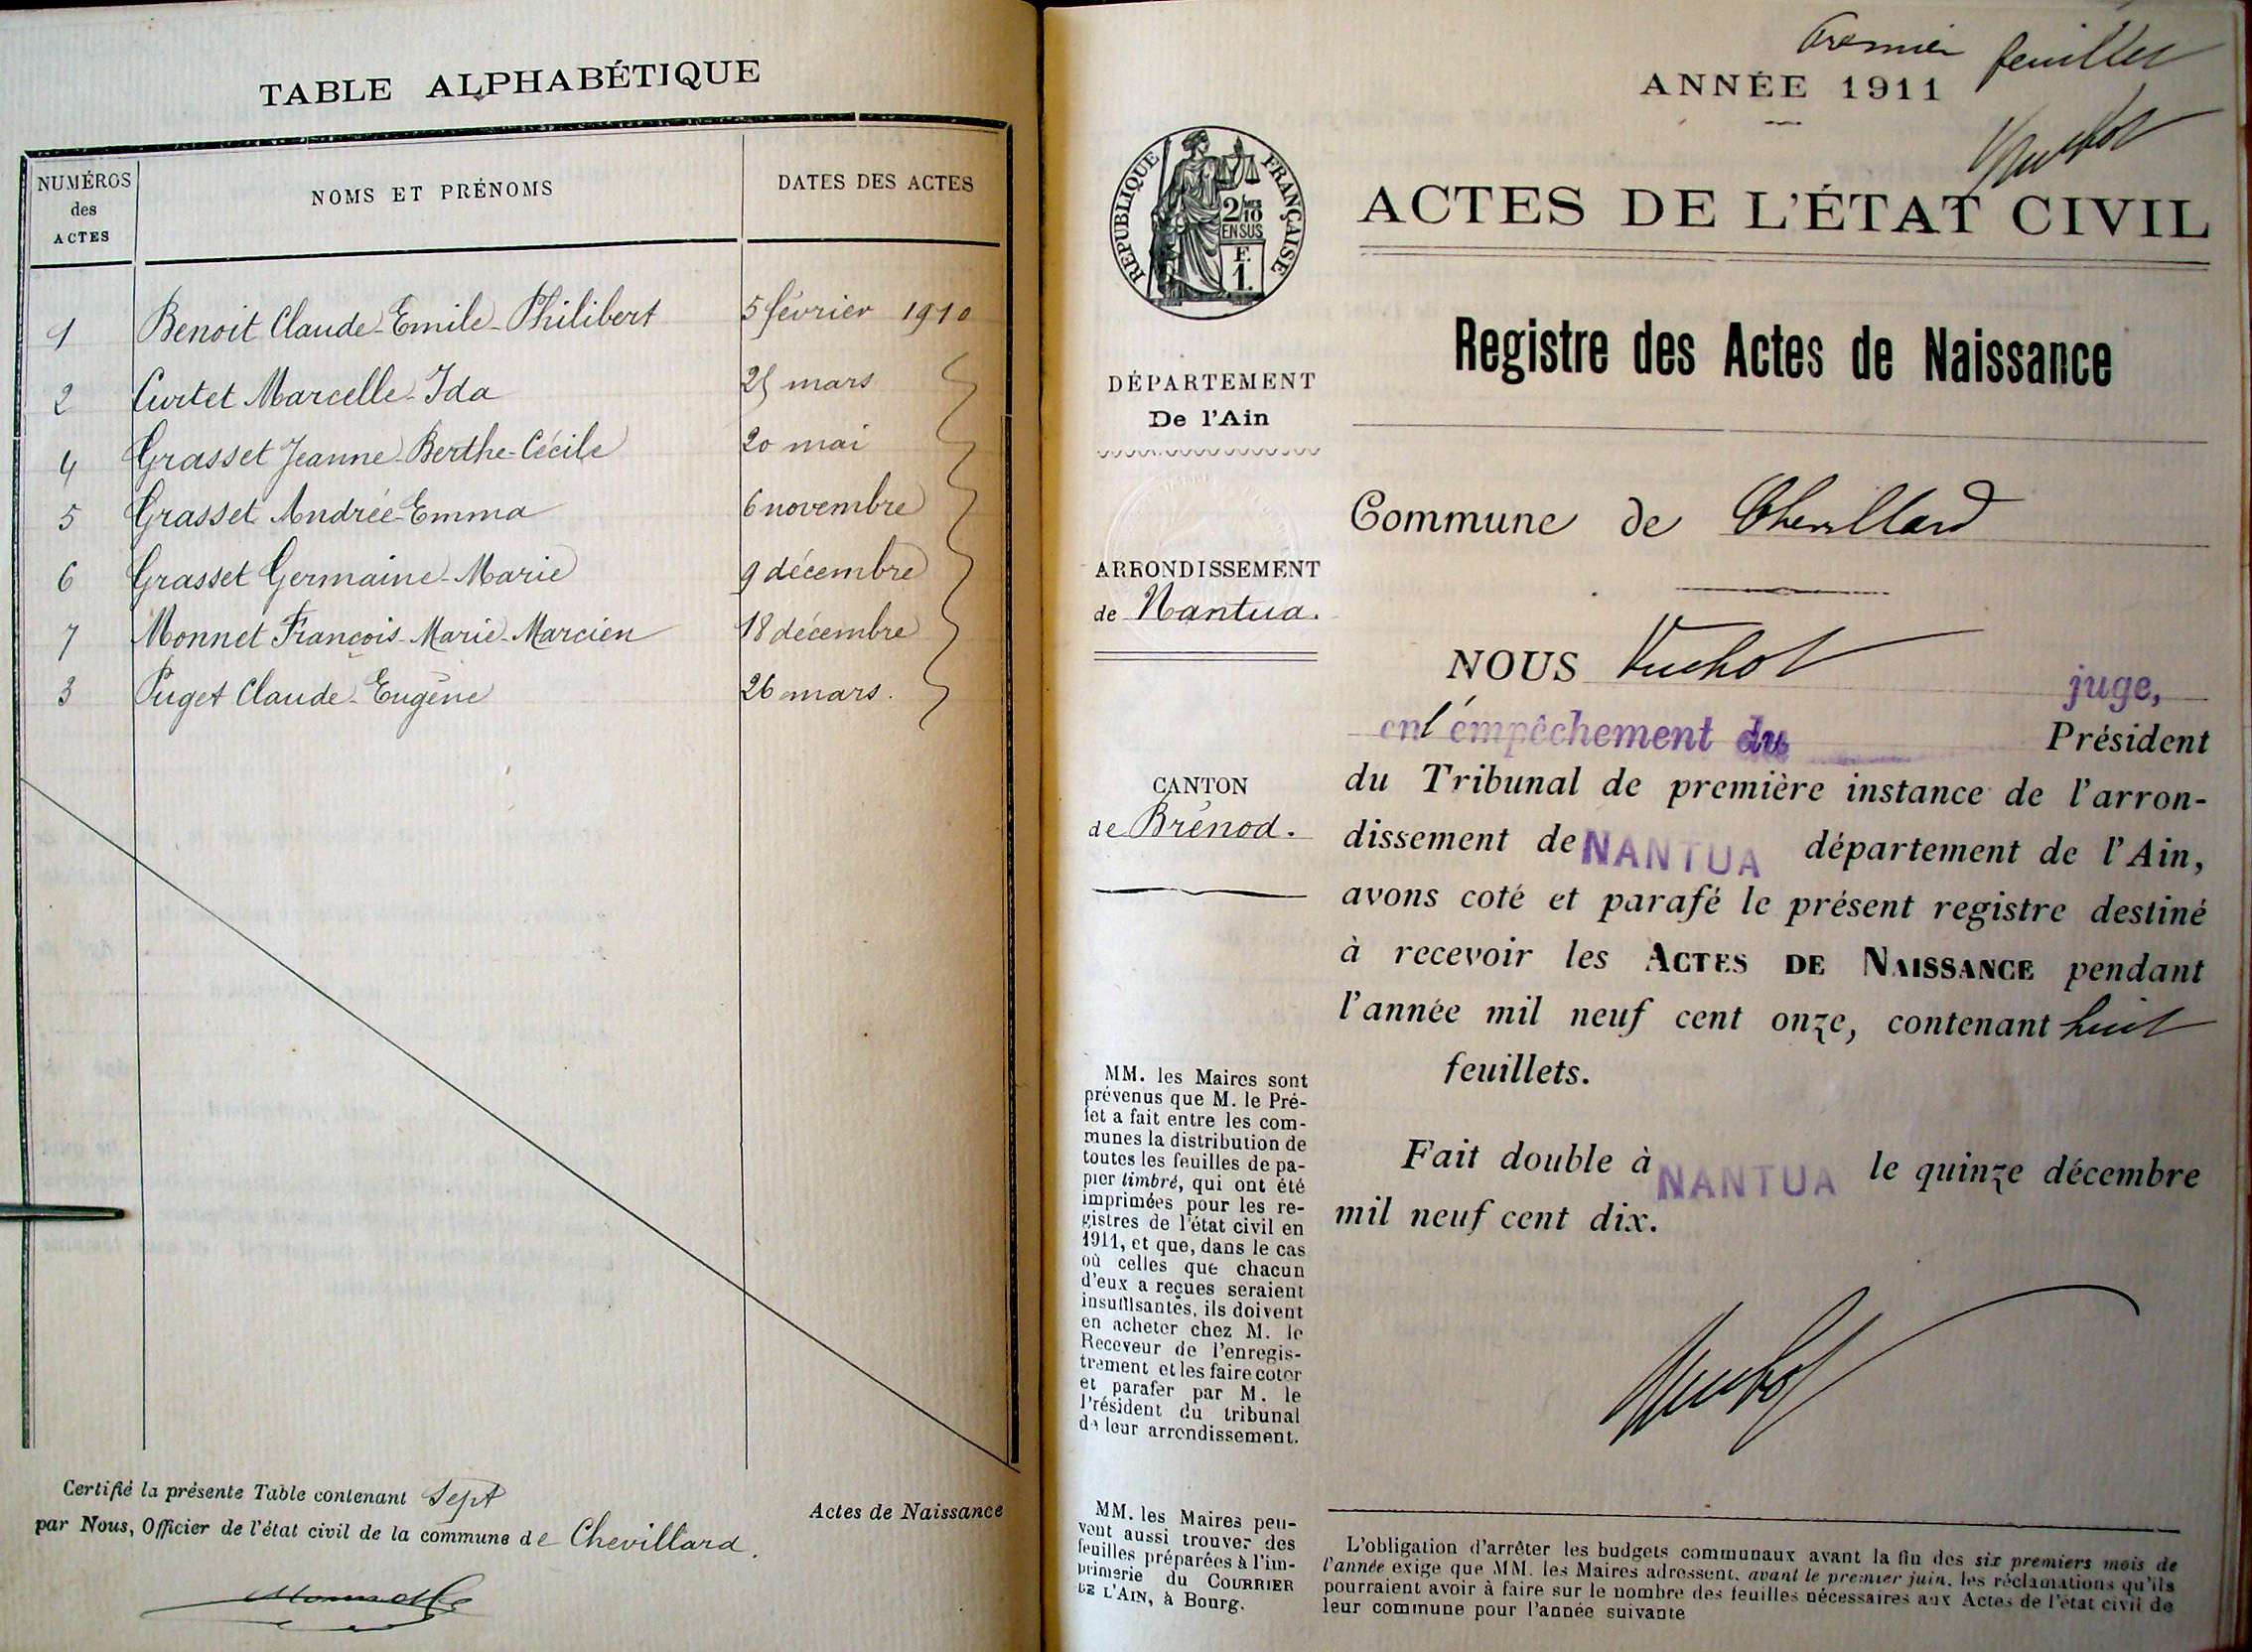 TABLE ALPHABÉTIQUE
NUMÉROS des ACTES
NOMS ET PRÉNOMS
DATES DES ACTES
1 Benoit Claude-Emile-Philibert 5 février 1910
2 Curtet Marcelle-Ida 25 mars
4 Grasset Jeanne-Berthe-Cécile 20 mai
5 Grasset Andrée-Emma 6 novembre
6 Grasset Germaine-Marie 9 décembre
7 Monnet François-Marie-Marcien 18 décembre
3 Puget Claude-Eugène 26 mars.
Certifié la présente Table contenant Sept Actes de Naissance
par Nous, Officier de l'état civil de la commune de Chevillard.
Premier feuillet
ANNÉE 1911
Vuchot
RÉPUBLIQUE FRANÇAISE
2/10
EN SUS
F.
1.
ACTES DE L'ÉTAT CIVIL
Registre des Actes de Naissance
DÉPARTEMENT
De l'Ain
Commune de Chevillard
ARRONDISSEMENT
de Nantua.
CANTON
de Brénod.
NOUS Vuchot juge,
en l'empêchement du Président
du Tribunal de première instance de l'arron-
dissement de NANTUA département de l'Ain,
avons coté et parafé le présent registre destiné
à recevoir les ACTES DE NAISSANCE pendant
l'année mil neuf cent onze, contenant huit
feuillets.
Fait double à NANTUA le quinze décembre
mil neuf cent dix.
Vuchot
MM. les Maires sont
prévenus que M. le Pré-
fet a fait entre les com-
munes la distribution de
toutes les feuilles de pa-
pier timbré, qui ont été
imprimées pour les re-
gistres de l'état civil en
1911, et que, dans le cas
où celles que chacun
d'eux a reçues seraient
insuffisantes, ils doivent
en acheter chez M. le
Receveur de l'enregis-
trement et les faire coter
et parafer par M. le
Président du tribunal
de leur arrondissement.
MM. les Maires peu-
vent aussi trouver des
feuilles préparées à l'im-
primerie du COURRIER
DE L'AIN, à Bourg.
L'obligation d'arrêter les budgets communaux avant la fin des six premiers mois de
l'année exige que MM. les Maires adressent, avant le premier juin, les réclamations qu'ils
pourraient avoir à faire sur le nombre des feuilles nécessaires aux Actes de l'état civil de
leur commune pour l'année suivante